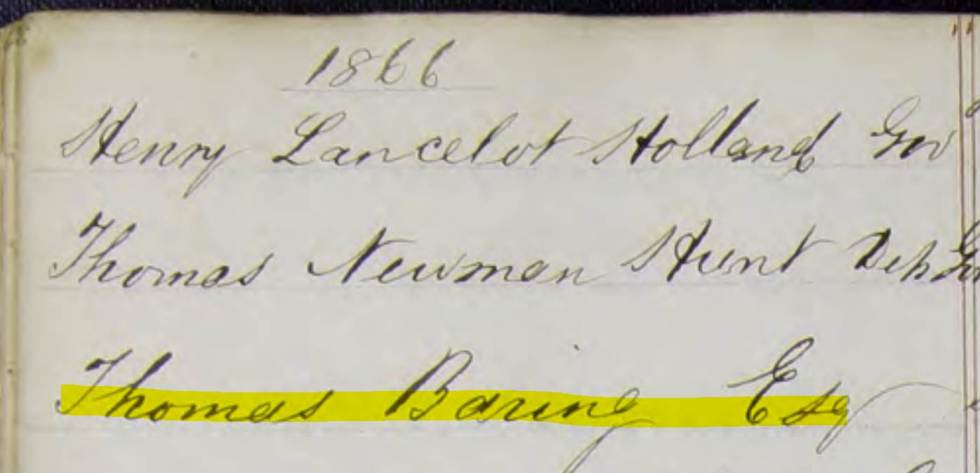 1866
Henry Lancelot Holland Gov
Thomas Newman Hunt Dep Go
Thomas Baring Esq